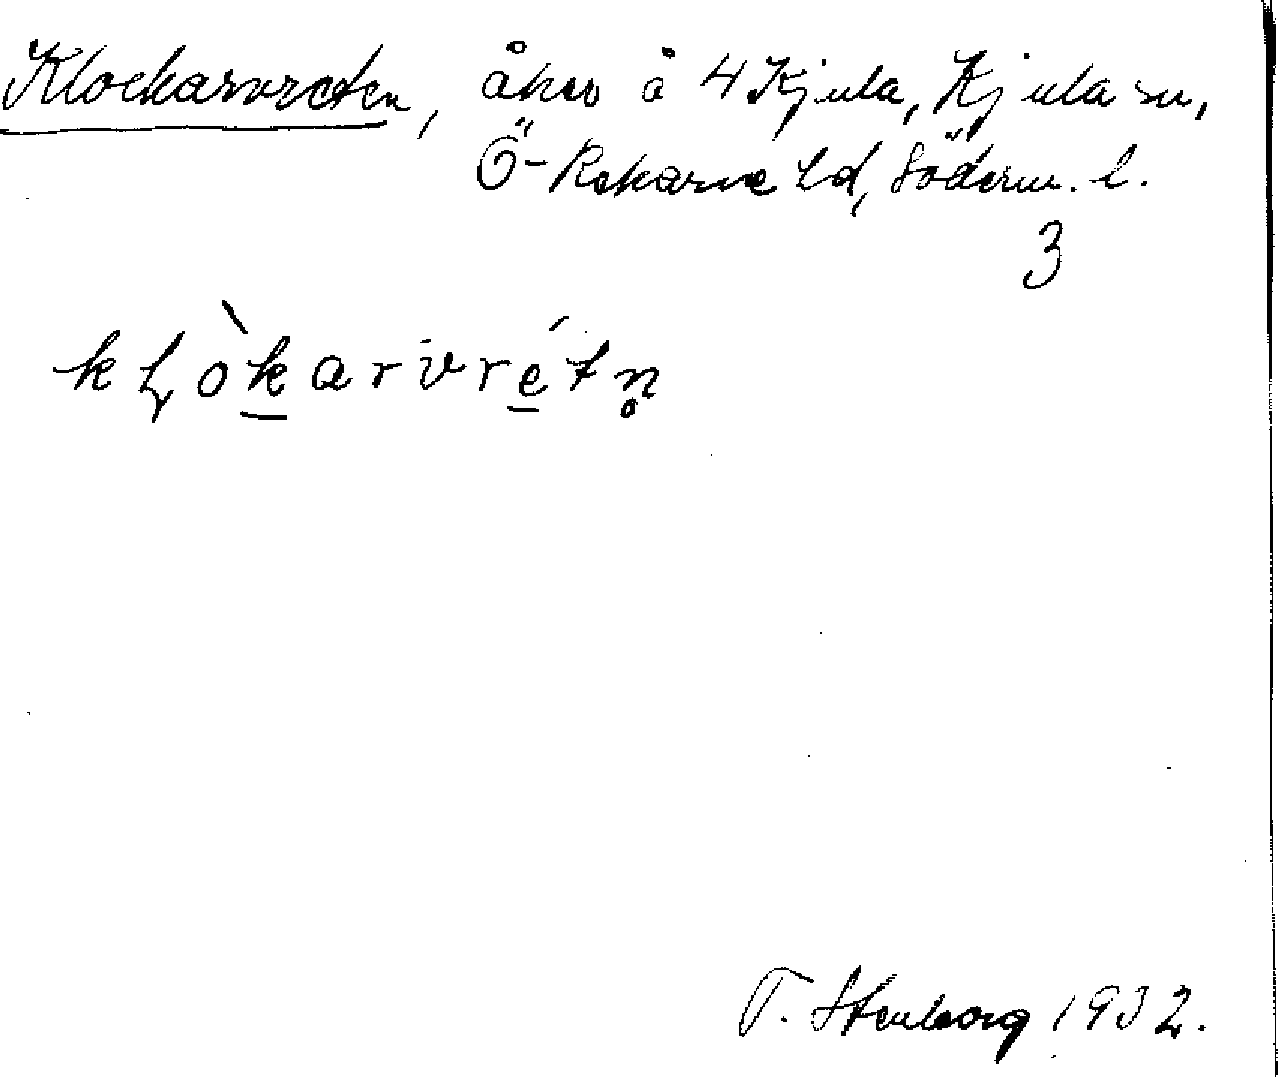 Klockarvreten, åker å 4 Kjula, Kjula sn,
Ö-Rekarne hd, Söderm. l.
3
kɽòk̲arvré̲tn̥
T. Stenborg 1932.